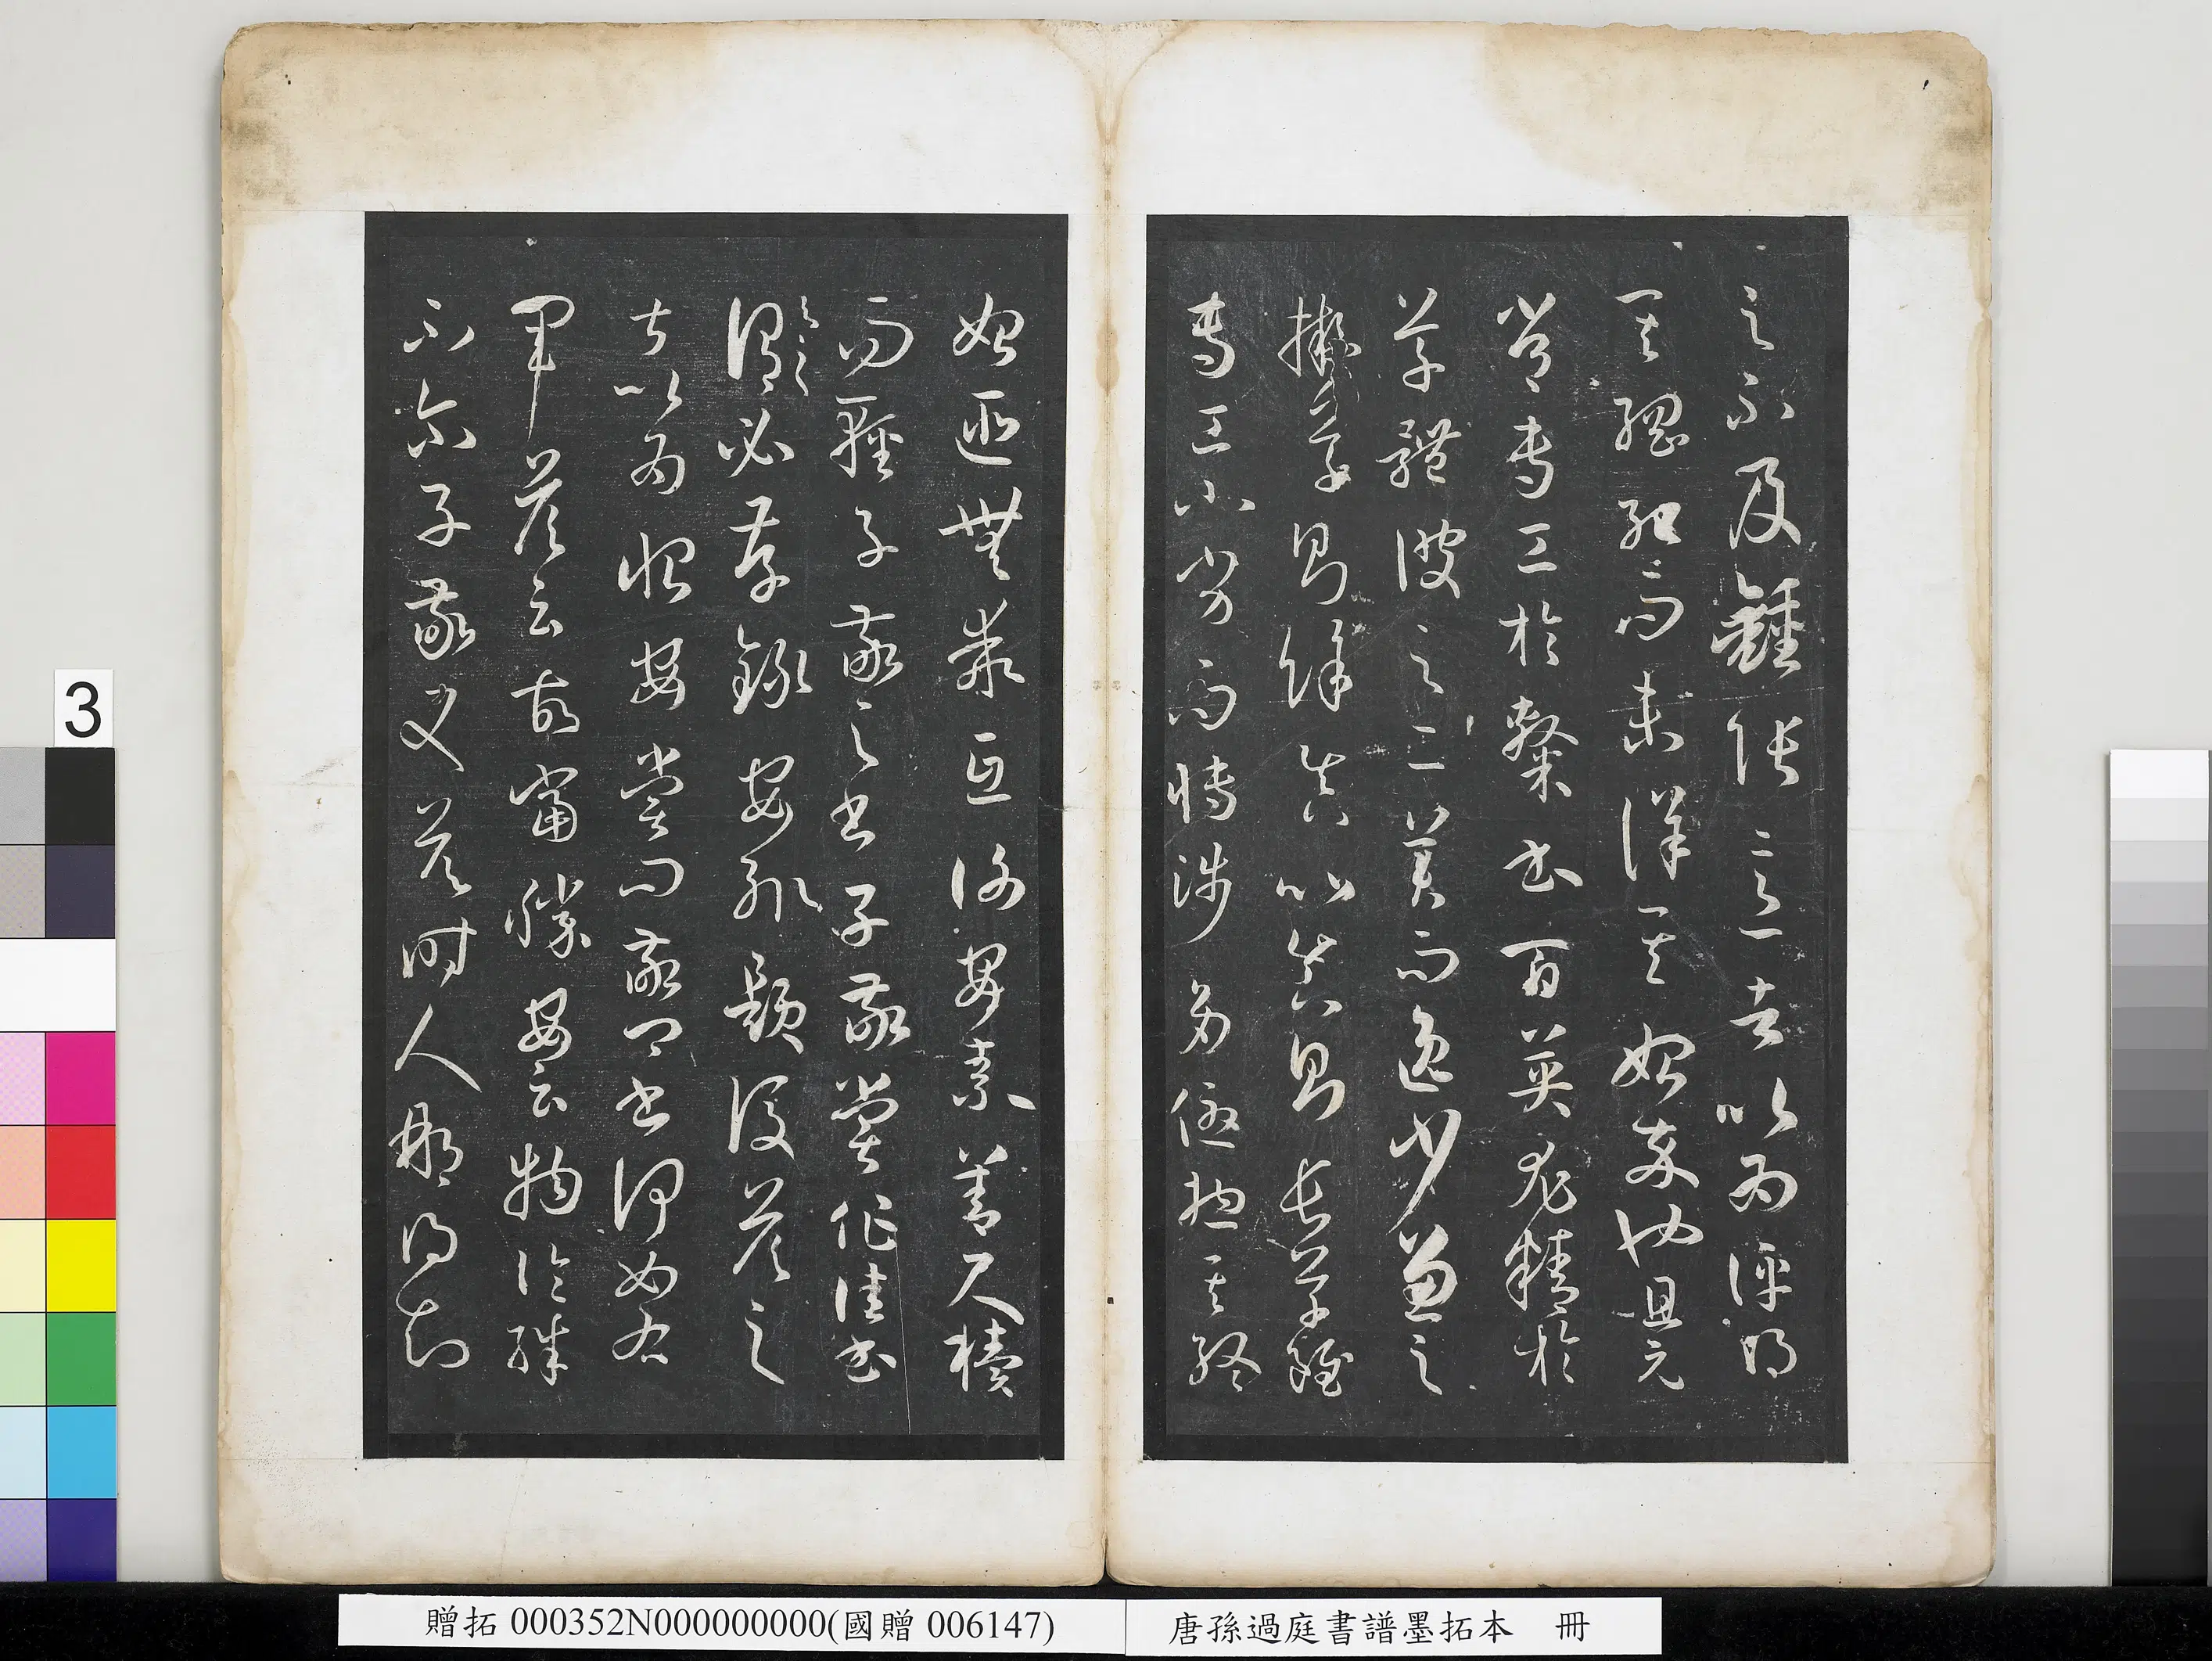 之不及鍾張意者以為評得
其綱紀而未詳其始卒也且元
常專工於隸書百英尤精於
草體彼之二美而逸少兼之
擬草則餘真比真則長草雖
專工小劣而博涉多優摠其終
始匪無乖互謝安素善尺牘
而輕子敬之書子敬嘗作佳書
與之謂必存錄安輒題後答之
甚以為恨安嘗問敬卿書何如右
軍答云故當勝安云物論殊
不尒子敬又答時人那得知
3
贈拓 000352N000000000(國贈 006147)
唐孫過庭書譜墨拓本 冊